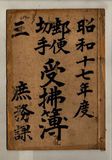 昭和十七年度
郵便
切手
受拂簿
三
庶務課